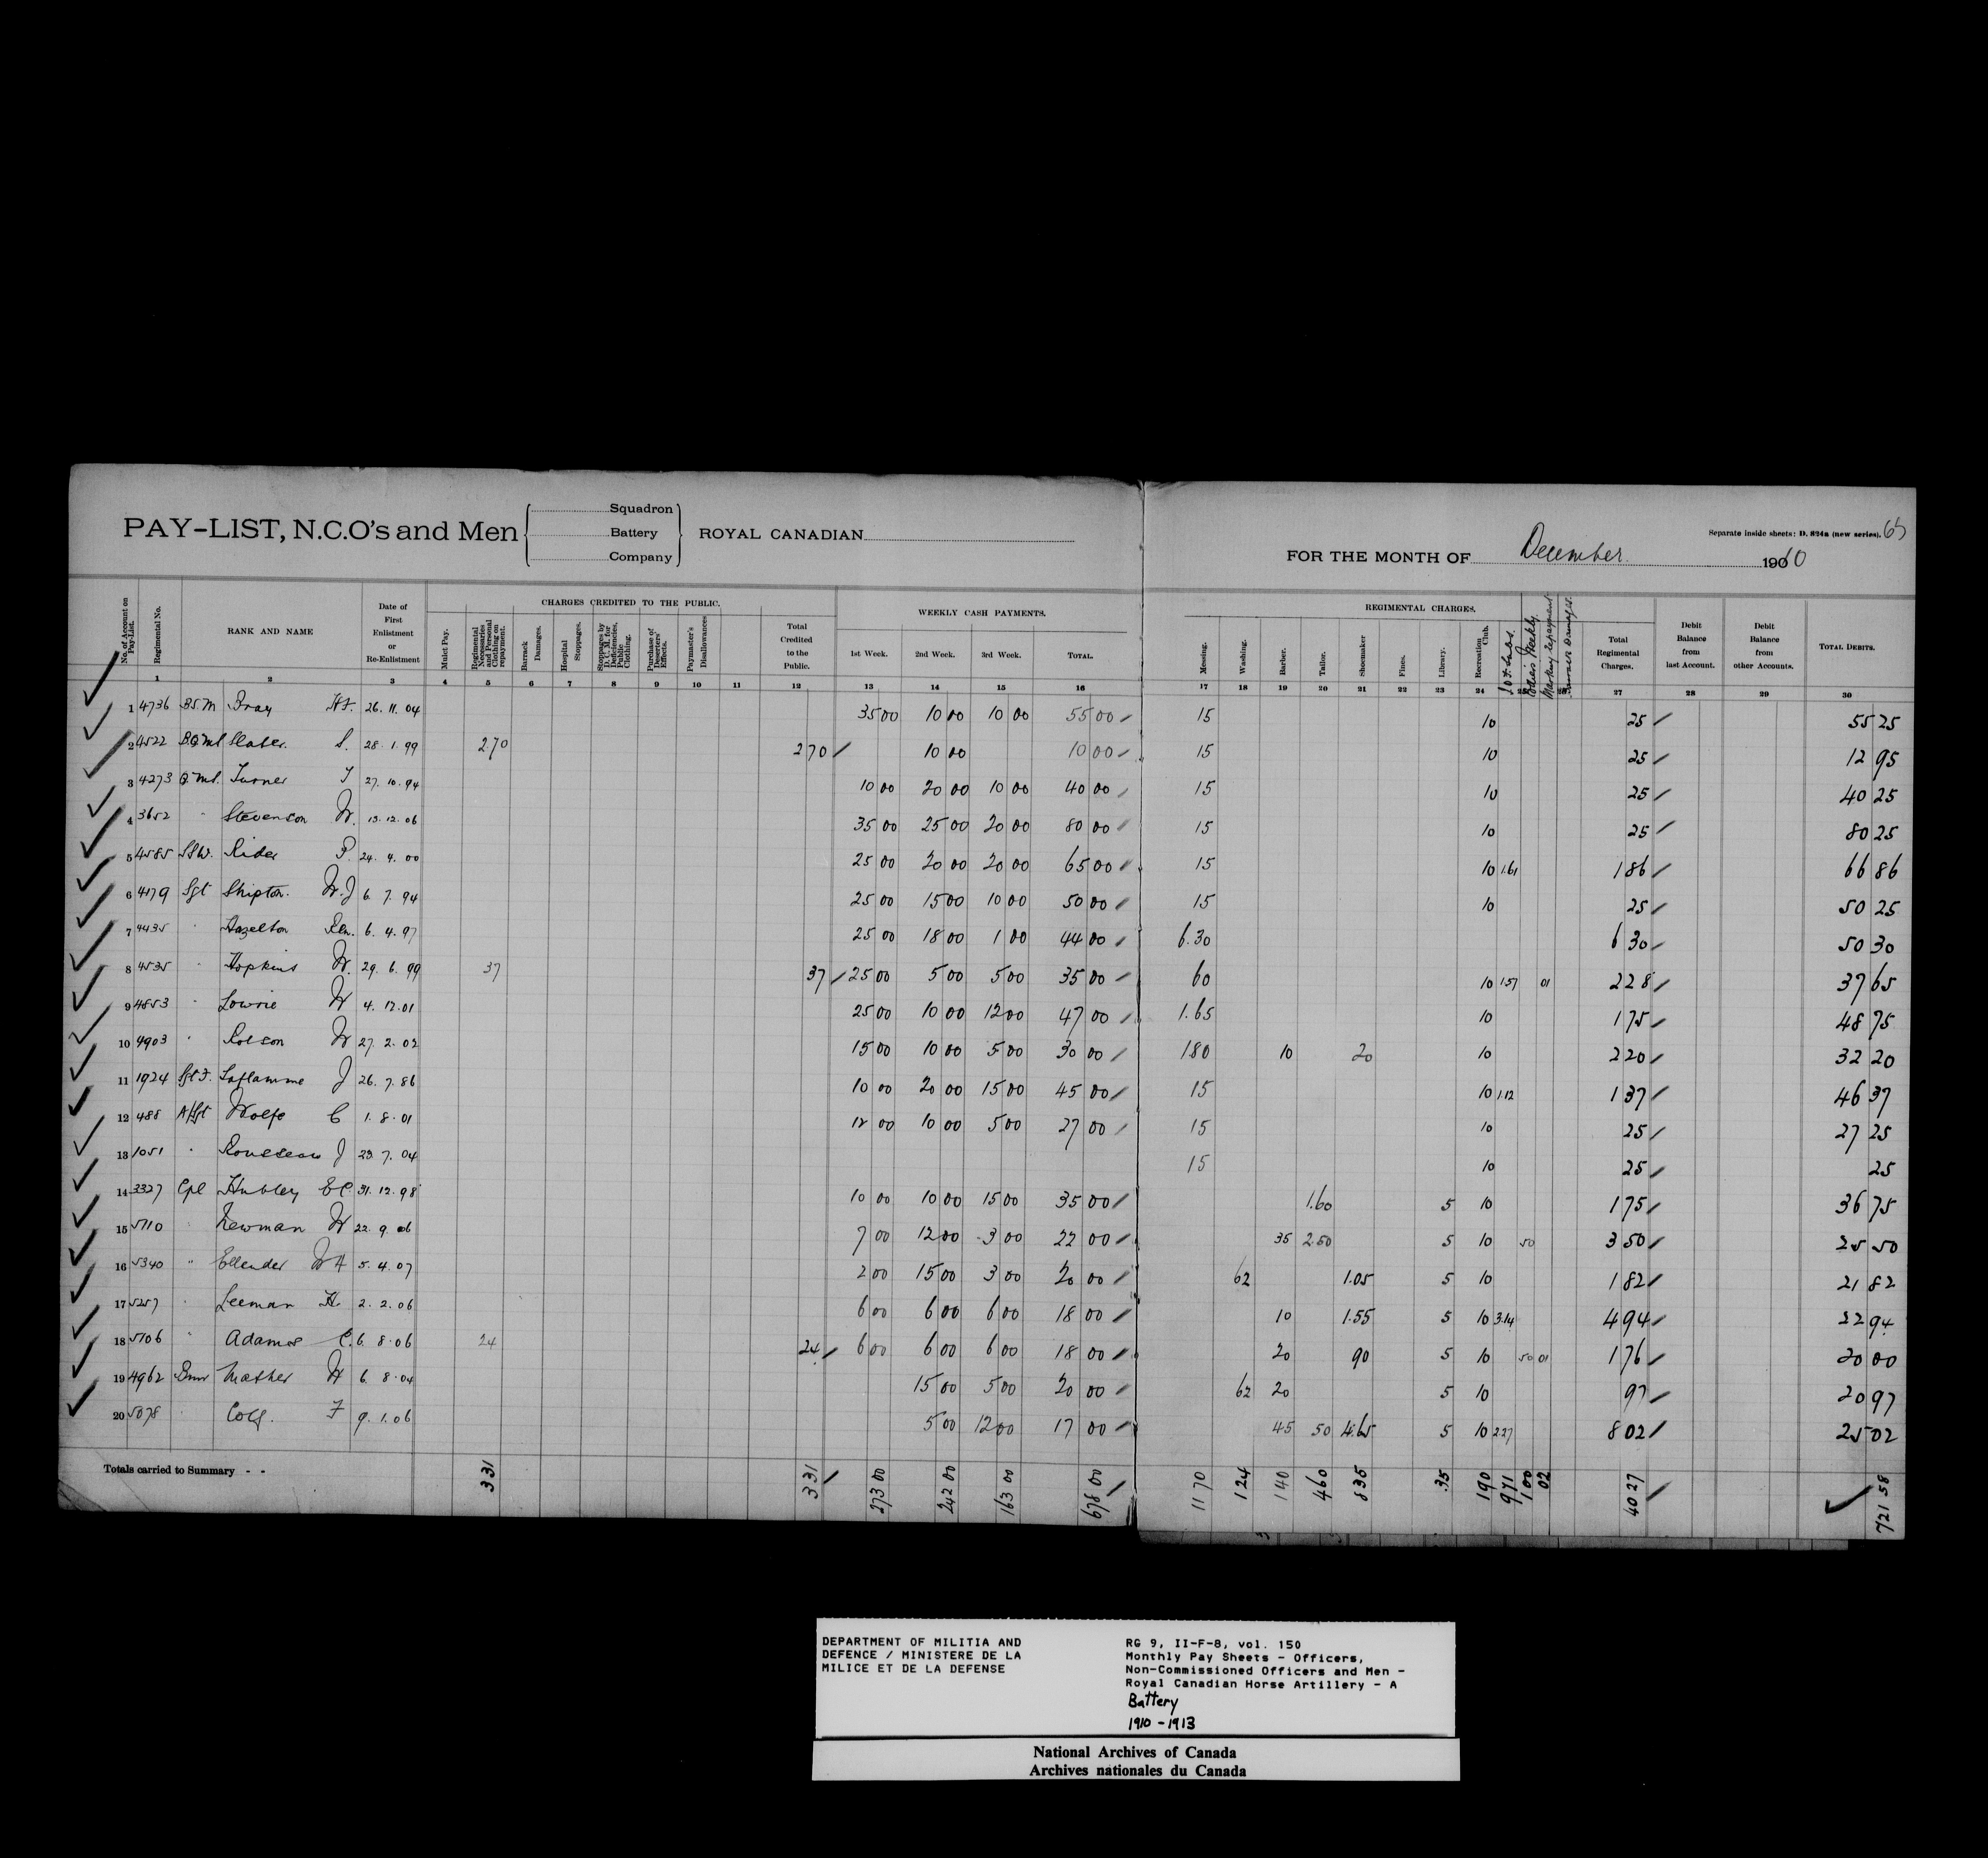 PAY-LIST, N.C.O's and Men Squadron Battery Company ROYAL CANADIAN
Separate inside sheets: D. 824a (new series). 65
FOR THE MONTH OF December 1910
CHARGES CREDITED TO THE PUBLIC. WEEKLY CASH PAYMENTS. REGIMENTAL CHARGES.
No. of Account on Pay-List. Regimental No. RANK AND NAME Date of First Enlistment or Re-Enlistment Mulct Pay. Regimental Necessaries and Personal Clothing on repayment. Barrack Damages. Hospital Stoppages. Stoppages by D. C. M. for Deficiencies, Public Clothing. Purchase of Deserters' Effects. Paymaster's Disallowances Total Credited to the Public. 1st Week. 2nd Week. 3rd Week. TOTAL. Messing. Washing. Barber. Tailor. Shoemaker Fines. Library. Recreation Club. Marking Repayment Barrack Damages Total Regimental Charges. Debit Balance from last Account. Debit Balance from other Accounts. TOTAL DEBITS.
1 2 3 4 5 6 7 8 9 10 11 12 13 14 15 16 17 18 19 20 21 22 23 24 25 26 27 28 29 30
1 4736 BS.M Gray 26.11.04 35 00 10 00 10 00 55 00 15 10 25 55 25
2 4522 B.Q.M.S Slater. S. 28.1.99 2.70 2 70 10 00 10 00 15 10 25 12 95
3 4273 Q.M.S. Turner J 27.10.94 10 00 20 00 10 00 40 00 15 10 25 40 25
4 3652 " Stevenson W. 13.12.06 35 00 25 00 20 00 80 00 15 10 25 80 25
5 4585 Rider P. 24.4.00 25 00 20 00 20 00 65 00 15 10 1.61 1 86 66 86
6 4179 Sgt Shipton. W.J 6.7.94 25 00 15 00 10 00 50 00 15 10 25 50 25
7 4435 " Hazelton 6.4.97 25 00 18 00 1 00 44 00 6.30 6 30 50 30
8 4535 " Hopkins W. 29.6.99 37 37 25 00 5 00 5 00 35 00 60 10 1 57 01 2 28 37 65
9 4853 " Lowrie W 4.12.01 25 00 10 00 12 00 47 00 1.65 10 1 75 48 75
10 4903 " Robson W 27.2.02 15 00 10 00 5 00 30 00 1.80 10 20 10 2 20 32 20
11 1924 Sgt.F. Laflamme J 26.7.86 10 00 20 00 15 00 45 00 15 10 1.12 1 37 46 37
12 488 A/Sgt Wolfe C 1.8.01 12 00 10 00 5 00 27 00 15 10 25 27 25
13 1051 " Rousseau J 23.7.04 15 10 25 25
14 3327 Cpl Hubley E C. 31.12.98 10 00 10 00 15 00 35 00 1.60 5 10 1 75 36 75
15 5110 " Newman W 22.9.06 7 00 12 00 3 00 22 00 35 2.50 5 10 50 3 50 25 50
16 5340 " Ellender W H 5.4.07 2 00 15 00 3 00 20 00 62 1.05 5 10 1 82 21 82
17 5257 " Leeman H. 2.2.06 6 00 6 00 6 00 18 00 10 1.55 5 10 3.14 4 94 22 94
18 5106 " Adams C. 6.8.06 24 24 6 00 6 00 6 00 18 00 20 90 5 10 50 01 1 76 20 00
19 4962 Mather W 6.8.04 15 00 5 00 20 00 62 20 5 10 97 20 97
20 5078 " F 9.1.06 5 00 12 00 17 00 45 50 4.65 5 10 2 27 8 02 25 02
Totals carried to Summary - - 3 31 3 31 273 00 242 00 163 00 678 00 11 70 1 24 1 40 4 60 8 35 .35 1 90 9 71 1 00 02 40 27 721 58
DEPARTMENT OF MILITIA AND
DEFENCE / MINISTERE DE LA
MILICE ET DE LA DEFENSE
RG 9, II-F-8, vol. 150
Monthly Pay Sheets - Officers,
Non-Commissioned Officers and Men -
Royal Canadian Horse Artillery - A
Battery
1910 - 1913
National Archives of Canada
Archives nationales du Canada